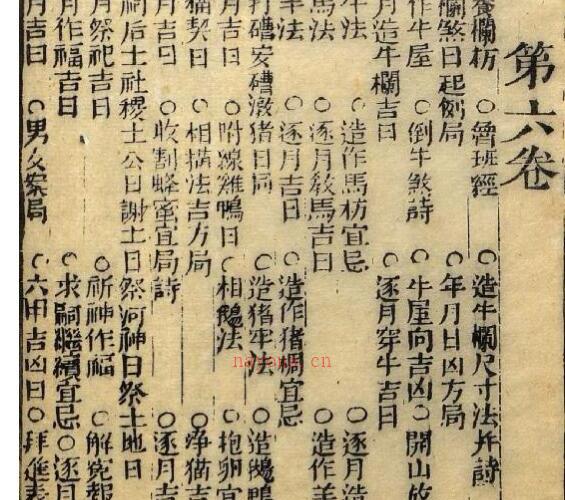 第六卷
養欄枋 ○魯班經 ○造牛欄尺寸法并詩
欄煞日起例局 ○年月日凶方局
作牛屋 ○倒牛煞詩 ○牛屋向吉凶 ○開山放
月造牛欄吉日 ○逐月穿牛吉日
牛法 ○造作馬枋宜忌 ○逐月造
馬法 ○逐月教馬吉日 ○造作羊
羊法 ○逐月吉日 ○造作猪椆宜忌
打磄安磄激猪日局 ○造猪牢法 ○造鵝鴨
月吉日 ○附線雞鴨日 ○相鵝法 ○抱卵宜
猫契日 ○相猫法吉方局 ○淨猫吉
月吉日 ○收割蜂蜜宜局詩 ○逐月吉
祠后土社稷土公日謝土日祭河神日祭土地日
月祭祀吉日 ○祈神作福 ○解冤報
月作福吉日 ○求嗣繼續宜忌 ○逐月
月吉日 ○男女案局 ○六甲吉凶日 ○拜進表